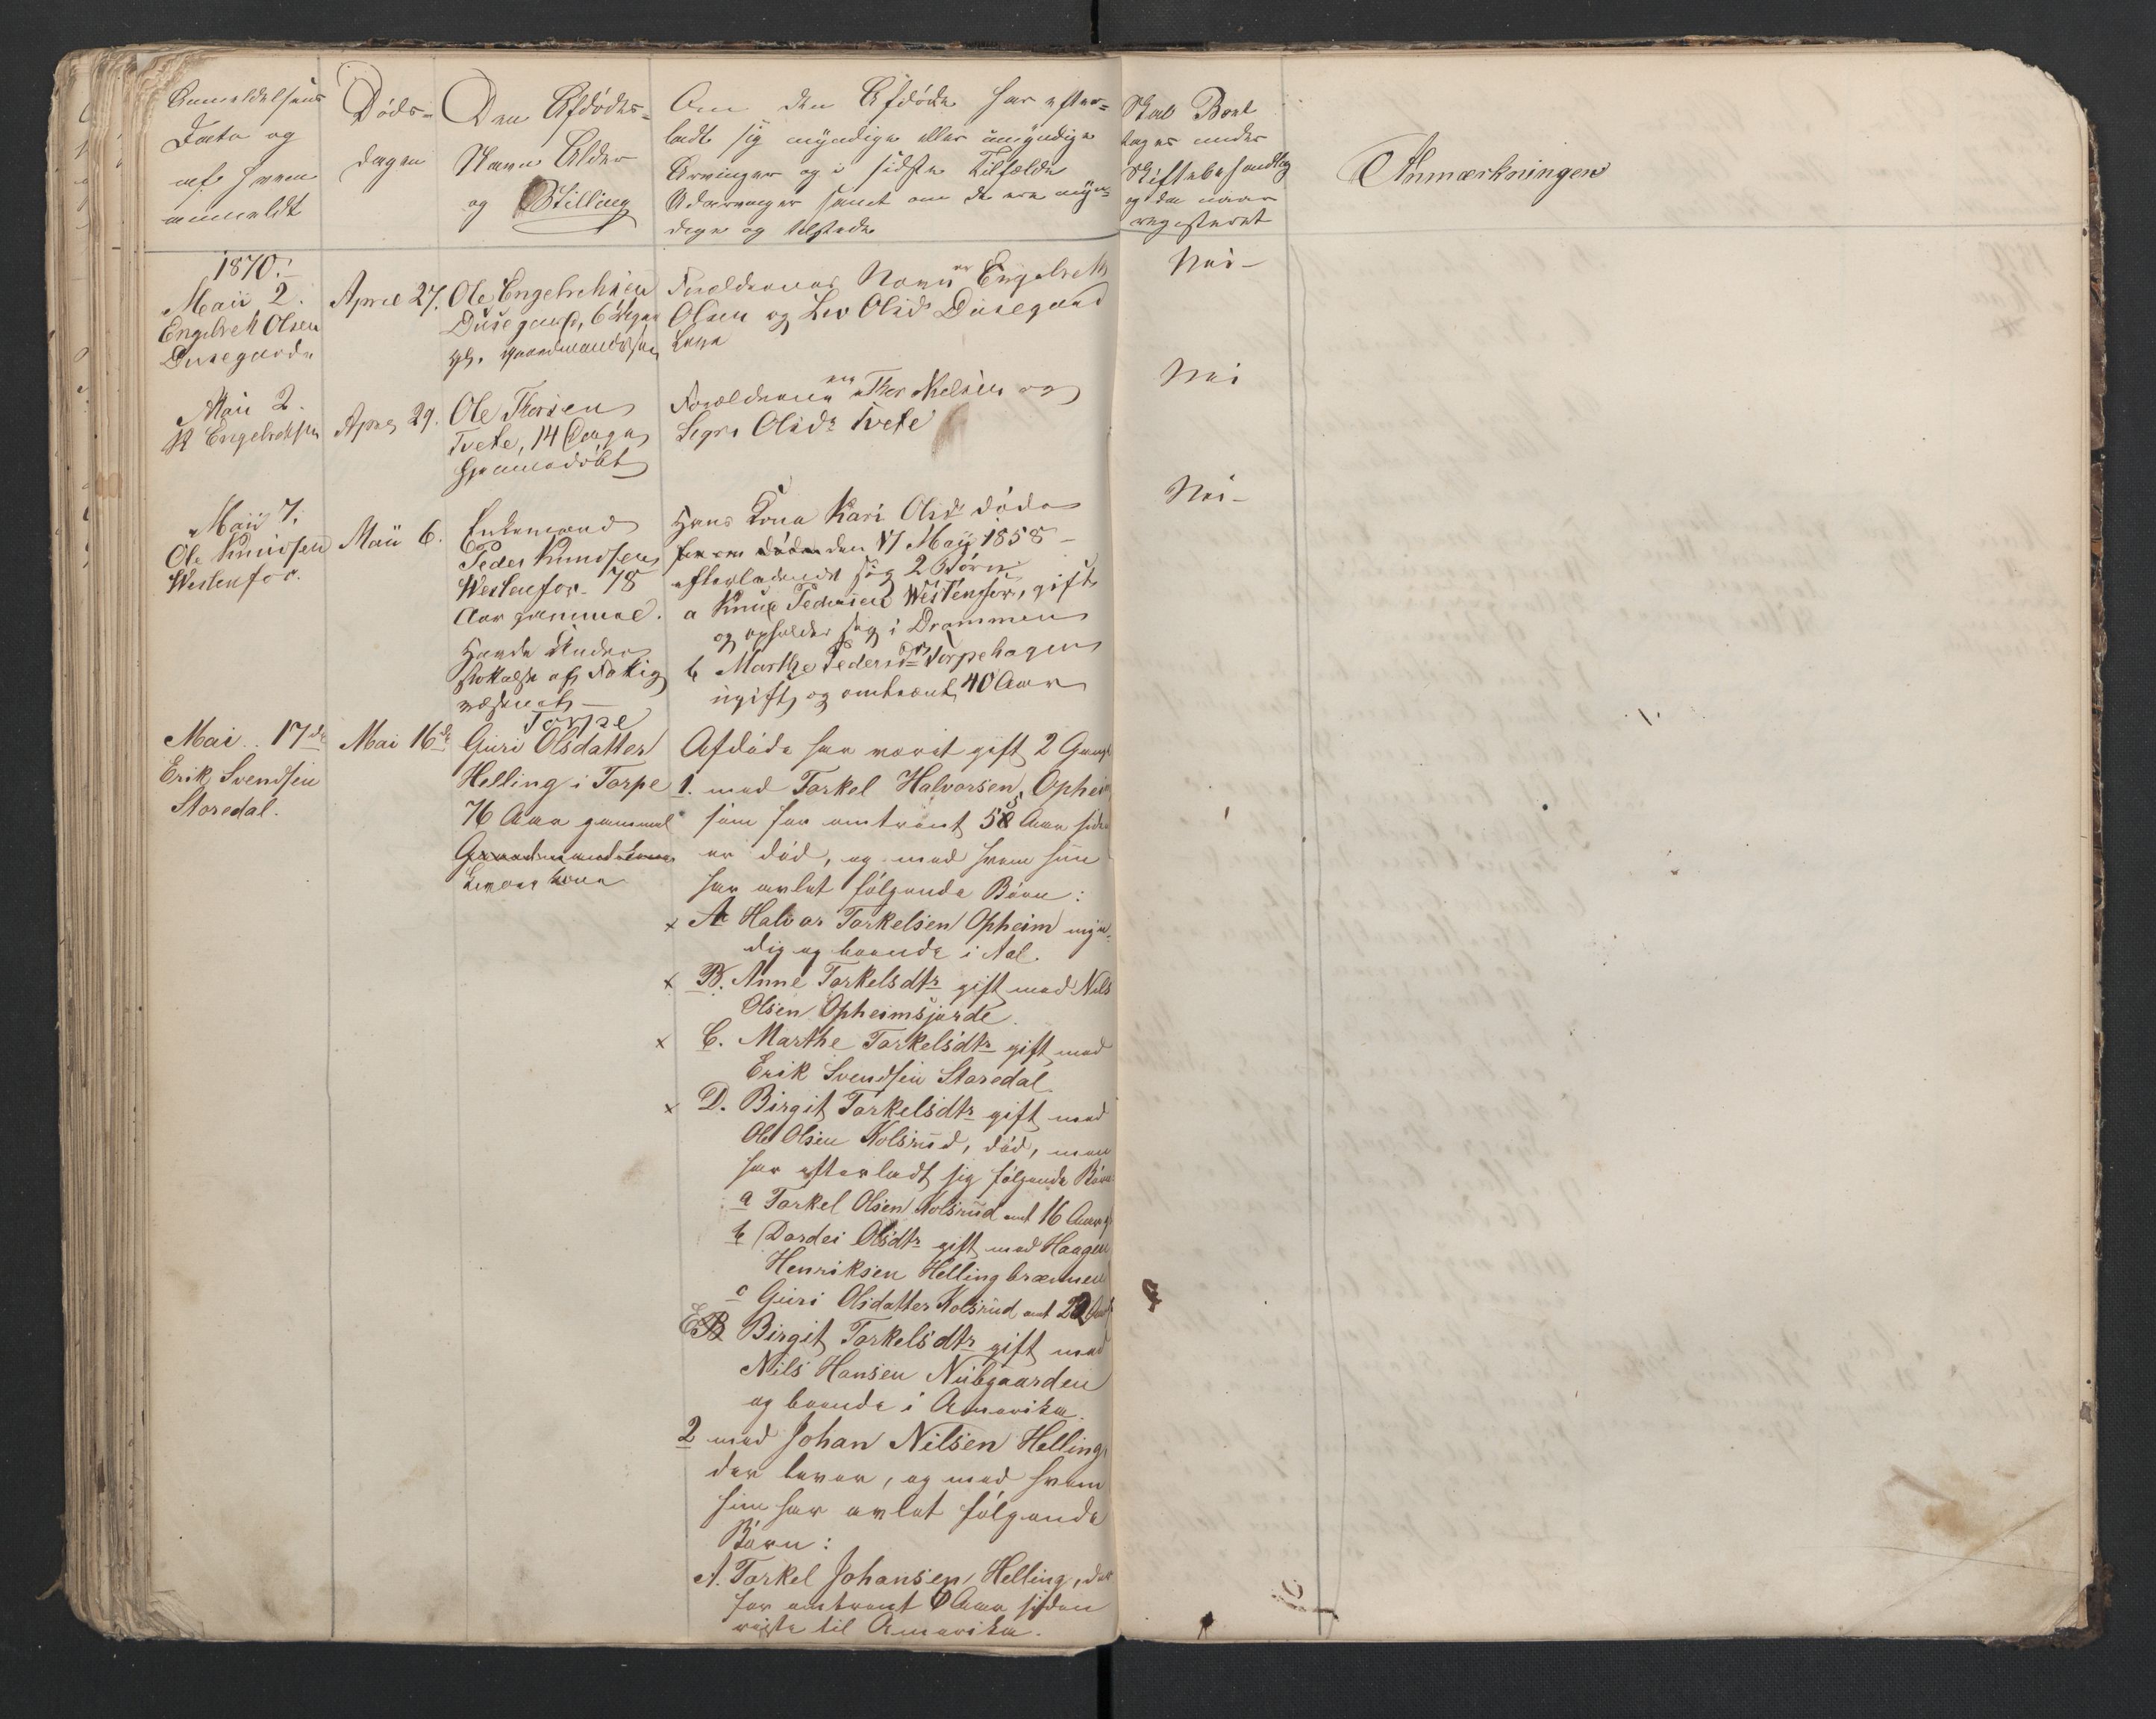 Anmeldelsens
Dato og
af hvem
anmeldt
Døds-
dagen
Den Afdødes
Navn Alder
og Stilling
Om den Afdøde har efter=
ladt sig myndige eller umyndige
Arvinger og i sidste Tilfælde
Udarvinger samt om de ere myn=
dige og tilstede
Skal Boet
tages under
Skiftebehandlg
og da naar
registreret
Anmærkninger
1870.
Maii 2.
Engebret Olsen
Dusegarde
April 27.
Ole Engebrethsen
Dusegard, 6 Uger
gl. gaardmandssøn
Forældrenes Navn er Engebreth
Olsen og Liv Olsdr Dusegaard
Nei-
Maii 2.
K Engebrethsen
April 29.
Ole Thorsen
Tvete, 14 Dage
hjemmedøbt
Forældrene ere Thor Nielsen og
Sigri Olsdr Tvete
Nei
Maii 7.
Ole Knudsen
Westenfor.
Maii 6.
Enkemand
Peder Knudsen
Westenfor 78
Aar gammel.
Havde Under
støttelse af Fattig
væsnet
Hans Kone Kari Olsdr døde
den 17 Maij 1858 -
efterladende sig 2 Børn
a Knut Pedersen Westenfor, gift
og opholder sig i Drammen
b Marthe Pedersdr Torpehagen
ugift og omtrent 40 Aar
Nei-
Mai 17de
Erik Svendsen
Storedal.
Mai 16de
Torpe
Guri Olsdatter
Helling i Torpe
76 Aar gammel
Gaardmandskone
Kone
Afdøde har været gift 2 Gange
1. med Torkel Halvorsen Opheim
som for omtrent 58 Aar siden
er død, og med hvem hun
har avlet følgende Børn:
x A Halvor Torkelsen Opheim myn=
dig og boende i Aal.
x B. Anne Torkelsdtr gift med Nils
Olsen Opheimsjorde.
x C. Marthe Torkelsdtr gift med
Erik Svendsen Storedal.
x D. Birgit Torkelsdtr gift med
Ole Olsen Kolsrud, død, men
har efterladt sig følgende Børn
a Torkel Olsen Kolsrud omt 16 Aar g
b Dordei Olsdtr gift med Haagen
Henriksen Hellingbræmmen
c Guri Olsdatter Kolsrud omt 20 Aar
E Birgit Torkelsdtr gift med
Nils Hansen Nubgaarden
og boende i Amerika.
2 med Johan Nilsen Helling
der lever, og med hvem
hun har avlet følgende
Børn:
A. Torkel Johansen Helling, der
for omtrent Aar siden
reiste til Amerika.